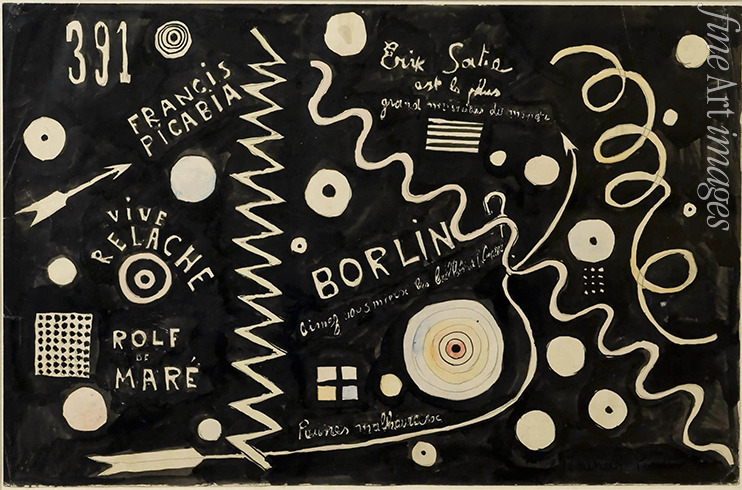 391
FRANCIS
PICABIA
Erik Satie
est le plus
grand musicien du monde
VIVE
RELACHE
BORLIN
aimez vous mieux les ballets
ROLF
DE
MARÉ
Pauvres malheureux
fineArtimages